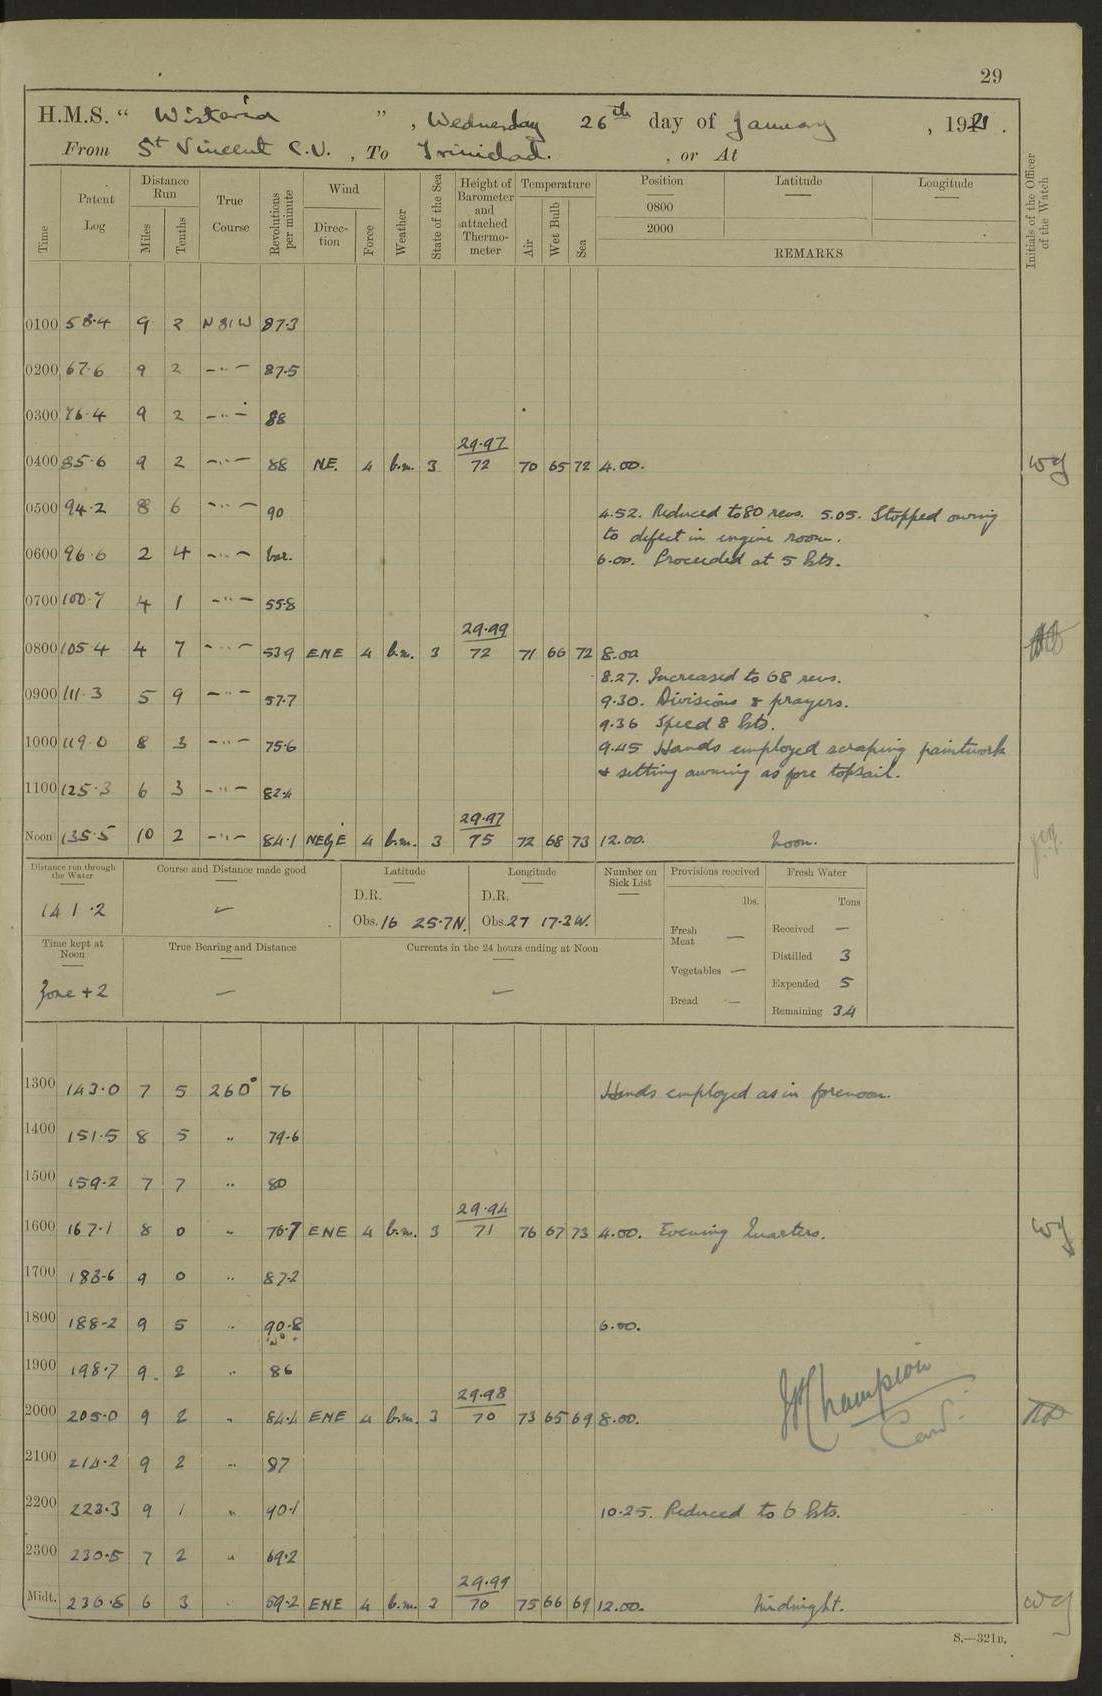 29
H.M.S. “ Wistaria ” , Wednesday 26th day of January , 1921 .
From St Vincent C.V. , To Trinidad. , or At
Time Patent Log Distance Run Miles Tenths True Course Revolutions per minute Wind Direction Force Weather State of the Sea Height of Barometer and attached Thermometer Temperature Air Wet Bulb Sea Position Latitude Longitude Initials of the Officer of the Watch
0800
2000
REMARKS
0100 58.4 9 2 N 81 W 87.3
0200 67.6 9 2 -"- 87.5
0300 76.4 9 2 -"- 88
29.97
0400 85.6 9 2 -"- 88 NE. 4 b.m. 3 72 70 65 72 4.00. WG
0500 94.2 8 6 -"- 90 4.52. Reduced to 80 revs. 5.05. Stopped owing
to defect in engine room.
0600 96.6 2 4 -"- var. 6.00. Proceeded at 5 kts.
0700 100.7 4 1 -"- 55.8
29.99
0800 105.4 4 7 -"- 53.9 ENE 4 b.m. 3 72 71 66 72 8.00
8.27. Increased to 68 revs.
0900 111.3 5 9 -"- 57.7 9.30. Divisions & prayers.
9.36 Speed 8 kts.
1000 119.0 8 3 -"- 75.6 9.45 Hands employed scraping paintwork
& setting awning as fore topsail.
1100 125.3 6 3 -"- 82.4
29.97
Noon 135.5 10 2 -"- 84.1 NE½E 4 b.m. 3 75 72 68 73 12.00. Noon.
Distance run through the Water Course and Distance made good Latitude Longitude Number on Sick List Provisions received Fresh Water
D.R. D.R. lbs. Tons
141.2 Obs. 16 25.7 N. Obs. 27 17.2 W. Fresh Meat — Received —
Time kept at Noon True Bearing and Distance Currents in the 24 hours ending at Noon Distilled 3
Vegetables — Expended 5
Zone + 2 — — Bread — Remaining 34
1300 143.0 7 5 260° 76 Hands employed as in forenoon.
1400 151.5 8 5 " 79.6
1500 159.2 7 7 " 80
29.94
1600 167.1 8 0 " 76.7 ENE 4 b.m. 3 71 76 67 73 4.00. Evening Quarters. WG
1700 183.6 9 0 " 87.2
1800 188.2 9 5 " 90.8 6.00.
1900 198.7 9 2 " 86
29.98
2000 205.0 9 2 " 84.4 ENE 4 b.m. 3 70 73 65 69 8.00.
Champion
2100 214.2 9 2 " 87
2200 223.3 9 1 " 90.1 10.25. Reduced to 6 kts.
2300 230.5 7 2 " 69.2
29.99
Midt. 236.8 6 3 " 59.2 ENE 4 b.m. 3 70 75 66 69 12.00. Midnight. WG
S.—321B.